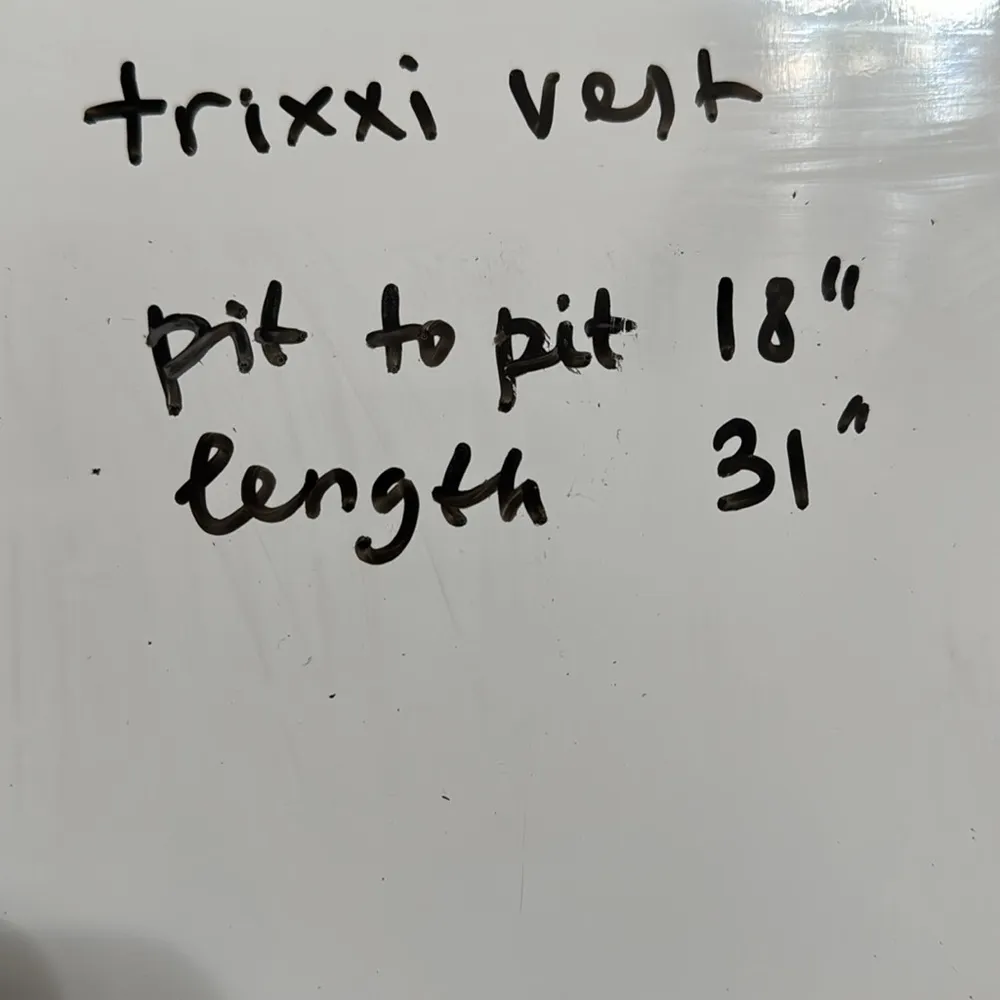 trixxi vest
pit to pit 18"
length 31"